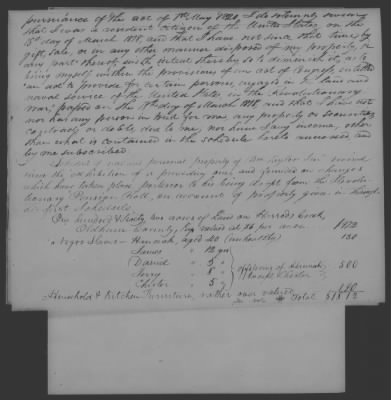 pursuance of the act of 1st May 1820, I do solemnly swear
that I was a resident citizen of the United States on the
18th day of March 1818, and that I have not since that time by
gift, sale, or in any other manner disposed of my property, or
any part thereof, with intent thereby so to diminish it, as to
bring myself within the provisions of an act of Congress entitled
"an act to provide for certain persons, engaged in the land and
naval service of the United States in the Revolutionary
War," passed on the 18th day of March 1818, and that I have not
nor has any person in trust for me, any property or securities
contracts or debts, due to me, nor have I any income, other
than what is contained in the schedule hereto annexed and
by me subscribed.
Schedule of personal property of Wm Taylor Senr
since the exhibition of a preceding one, and founded on changes
which have taken place posterior to his being dropt from the Revolu-
tionary Pension Roll on account of property given in
first schedule.
One hundred & ninety one acres of Land on Harrods Creek
Oldham County, Ky valued at $ per acre
Negro Slaves - Hannah, aged 40 (unhealthy) 150
James " 12 yrs
Daniel " 9 "
Jerry " 8 "
Chester " 5 "
offspring of Hannah 500
Household & Kitchen Furniture, rather over valued
Total